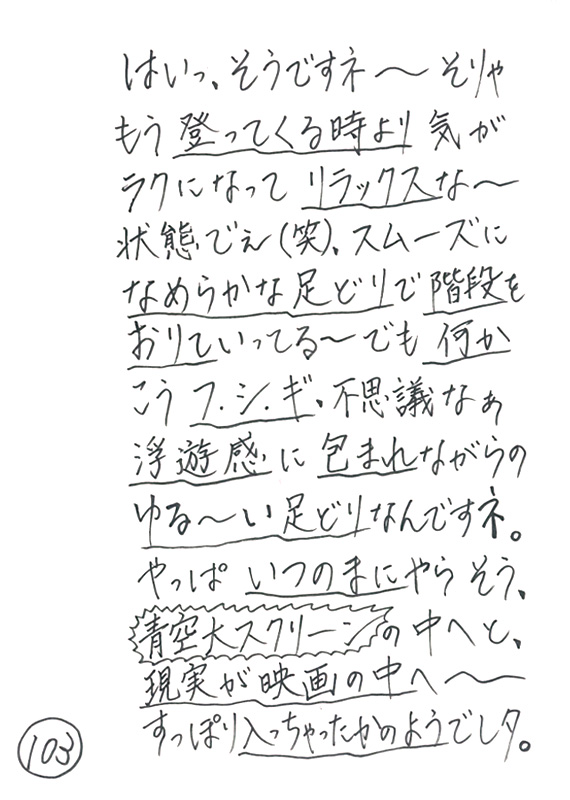 はいっ、そうですネ〜そりゃ
もう登ってくる時より気が
ラクになってリラックスな〜
状態でぇ(笑)、スムーズに
なめらかな足どりで階段を
おりていってる〜でも何か
こうフ.シ.ギ、不思議なぁ
浮遊感に包まれながらの
ゆる〜い足どりなんですネ。
やっぱいつのまにやらそう、
青空大スクリーンの中へと、
現実が映画の中へ〜
すっぽり入っちゃったかのようでしタ。
103